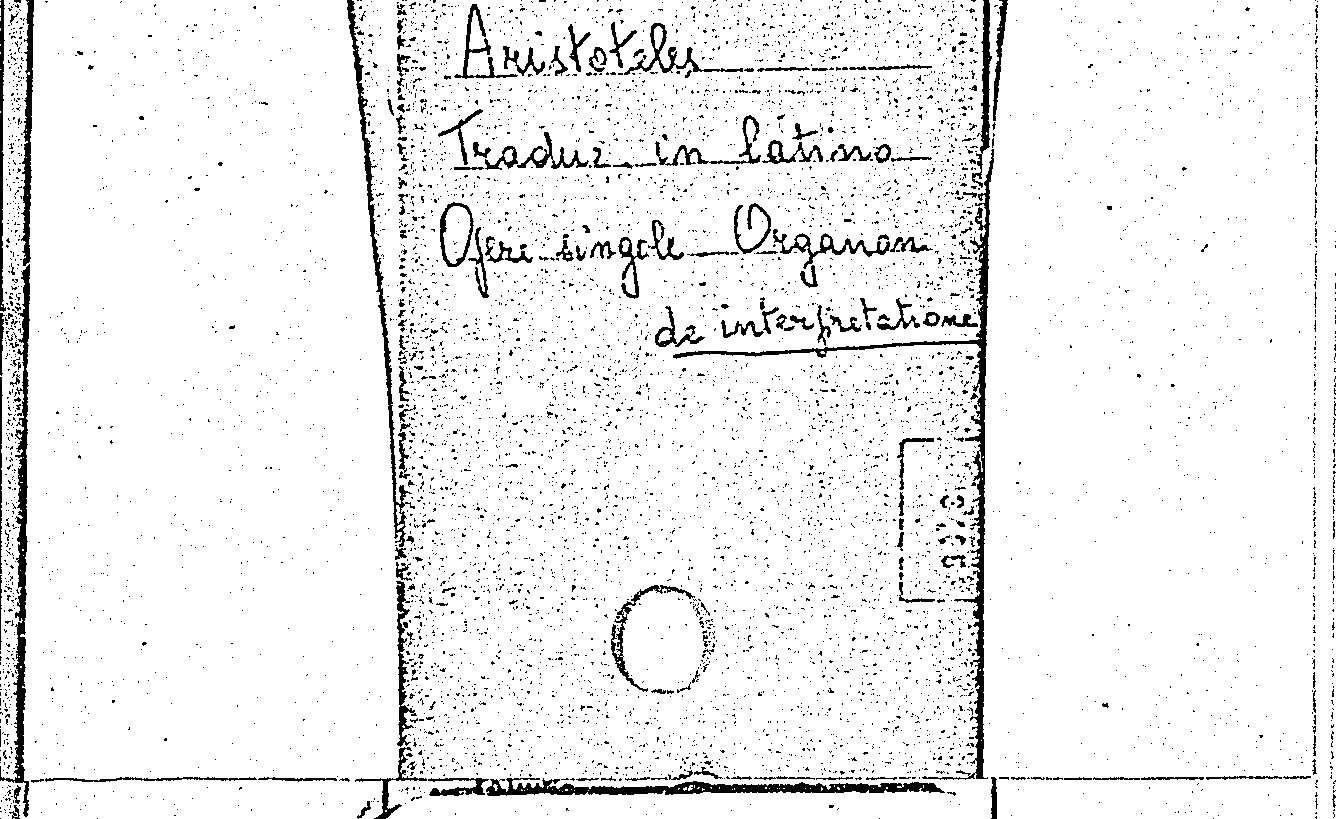 Aristoteles
Traduz. in latino
Opere singole Organon
de interpretatione